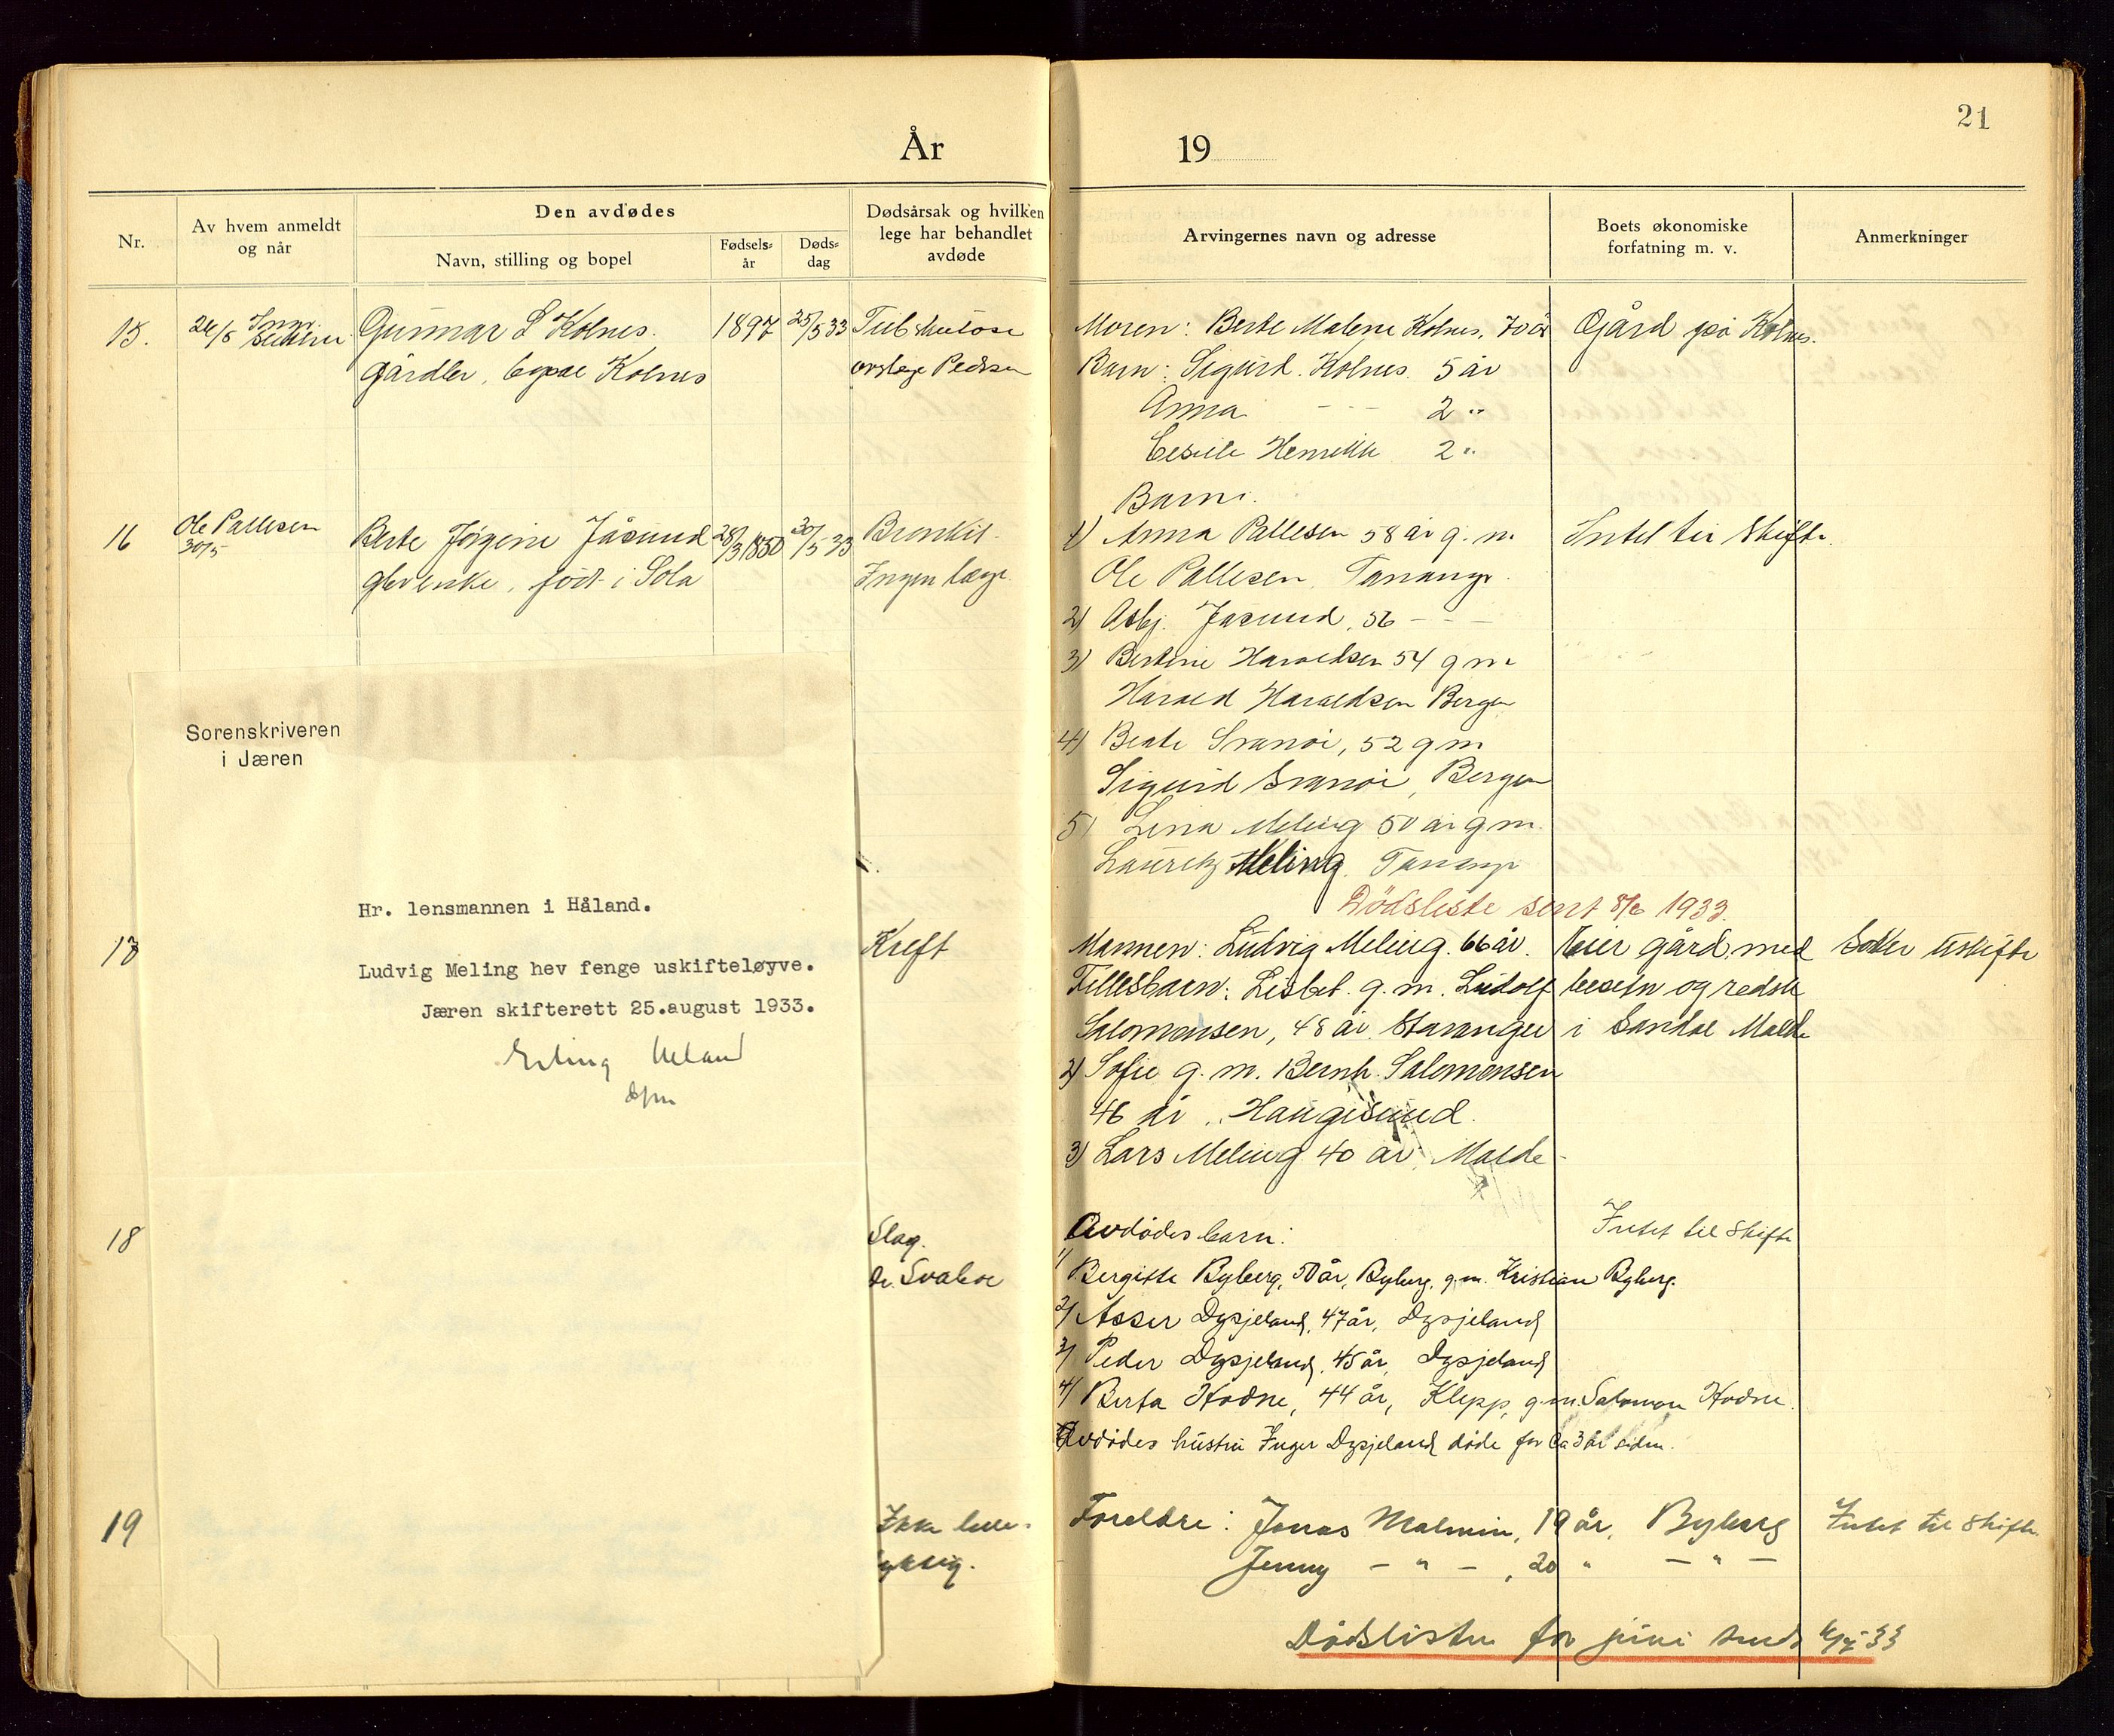 21
År
19
Nr.
Av hvem anmeldt
og når
Den avdødes
Navn, stilling og bopel
Fødsels-
år
Døds-
dag
Dødsårsak og hvilken
lege har behandlet
avdøde
Arvingernes navn og adresse
Boets økonomiske
forfatning m. v.
Anmerkninger
15.
Gunnar L Kolnes.
1897
25/5 33
gårdbr, bopæl Kolnes
Moren: Berte Malene Kolnes, 70 år
Gård på Kolnes.
Barn: Sigurd. Kolnes. 5 år
Anna - - - 2 "
Henrikke 2 "
16
Ole Pallesen
30/5
Berte Jørgine Jåsund
28/3 1850
30/5 33
Bronkit.
født i Sola
Ingen læge.
Barn:
1) Anna Pallesen 58 år g. m.
Intet til Skifte.
Ole Pallesen, Tananger.
2) Asbj. Jåsund, 56 - - -
3) Bertine Haraldsen 54 g m
Harald Haraldsen Bergen
4) Beate Svanøi, 52 g m
Sigurd Svanøi, Bergen
5) Lina Meling 50 år g m.
Lauritz Meling. Tananger
Dödsliste sent 8/6 1933.
Sorenskriveren
i Jæren
Hr. lensmannen i Håland.
Ludvig Meling hev fenge uskifteløyve.
Jæren skifterett 25.august 1933.
Erling
17
Kreft
Mannen: Ludvig Meling. 66 år.
Eier gård med
Søker uskifte
Fellesbarn: Lisbet. g. m. Ludolf
og redsk
Salomonsen, 48 år Stavanger
i Sandal Malde
2) Sofie g. m. Bernh. Salomonsen
46 år, Haugesund.
3) Lars Meling 40 år Malde
18
Slag.
Dr. Svaboe
Avdødes barn:
Intet til skifte
1) Bergitte Byberg, 50 år, Byberg, g.m. Kristian Byberg.
2) Asser Dysjeland, 47 år, Dysjeland
3) Peder Dysjeland, 45 år, Dysjeland
4) Berta Hodne, 44 år, Klepp, g.m. Salomon Hodne.
Avdødes hustru Inger Dysjeland døde for ca 3 år siden.
19
Ikke
Foreldre: Jonas Malmin, 19 år, Byberg
Intet til skifte.
Jenny - " - , 20 " - " -
Dødslisten for juni sendt 33